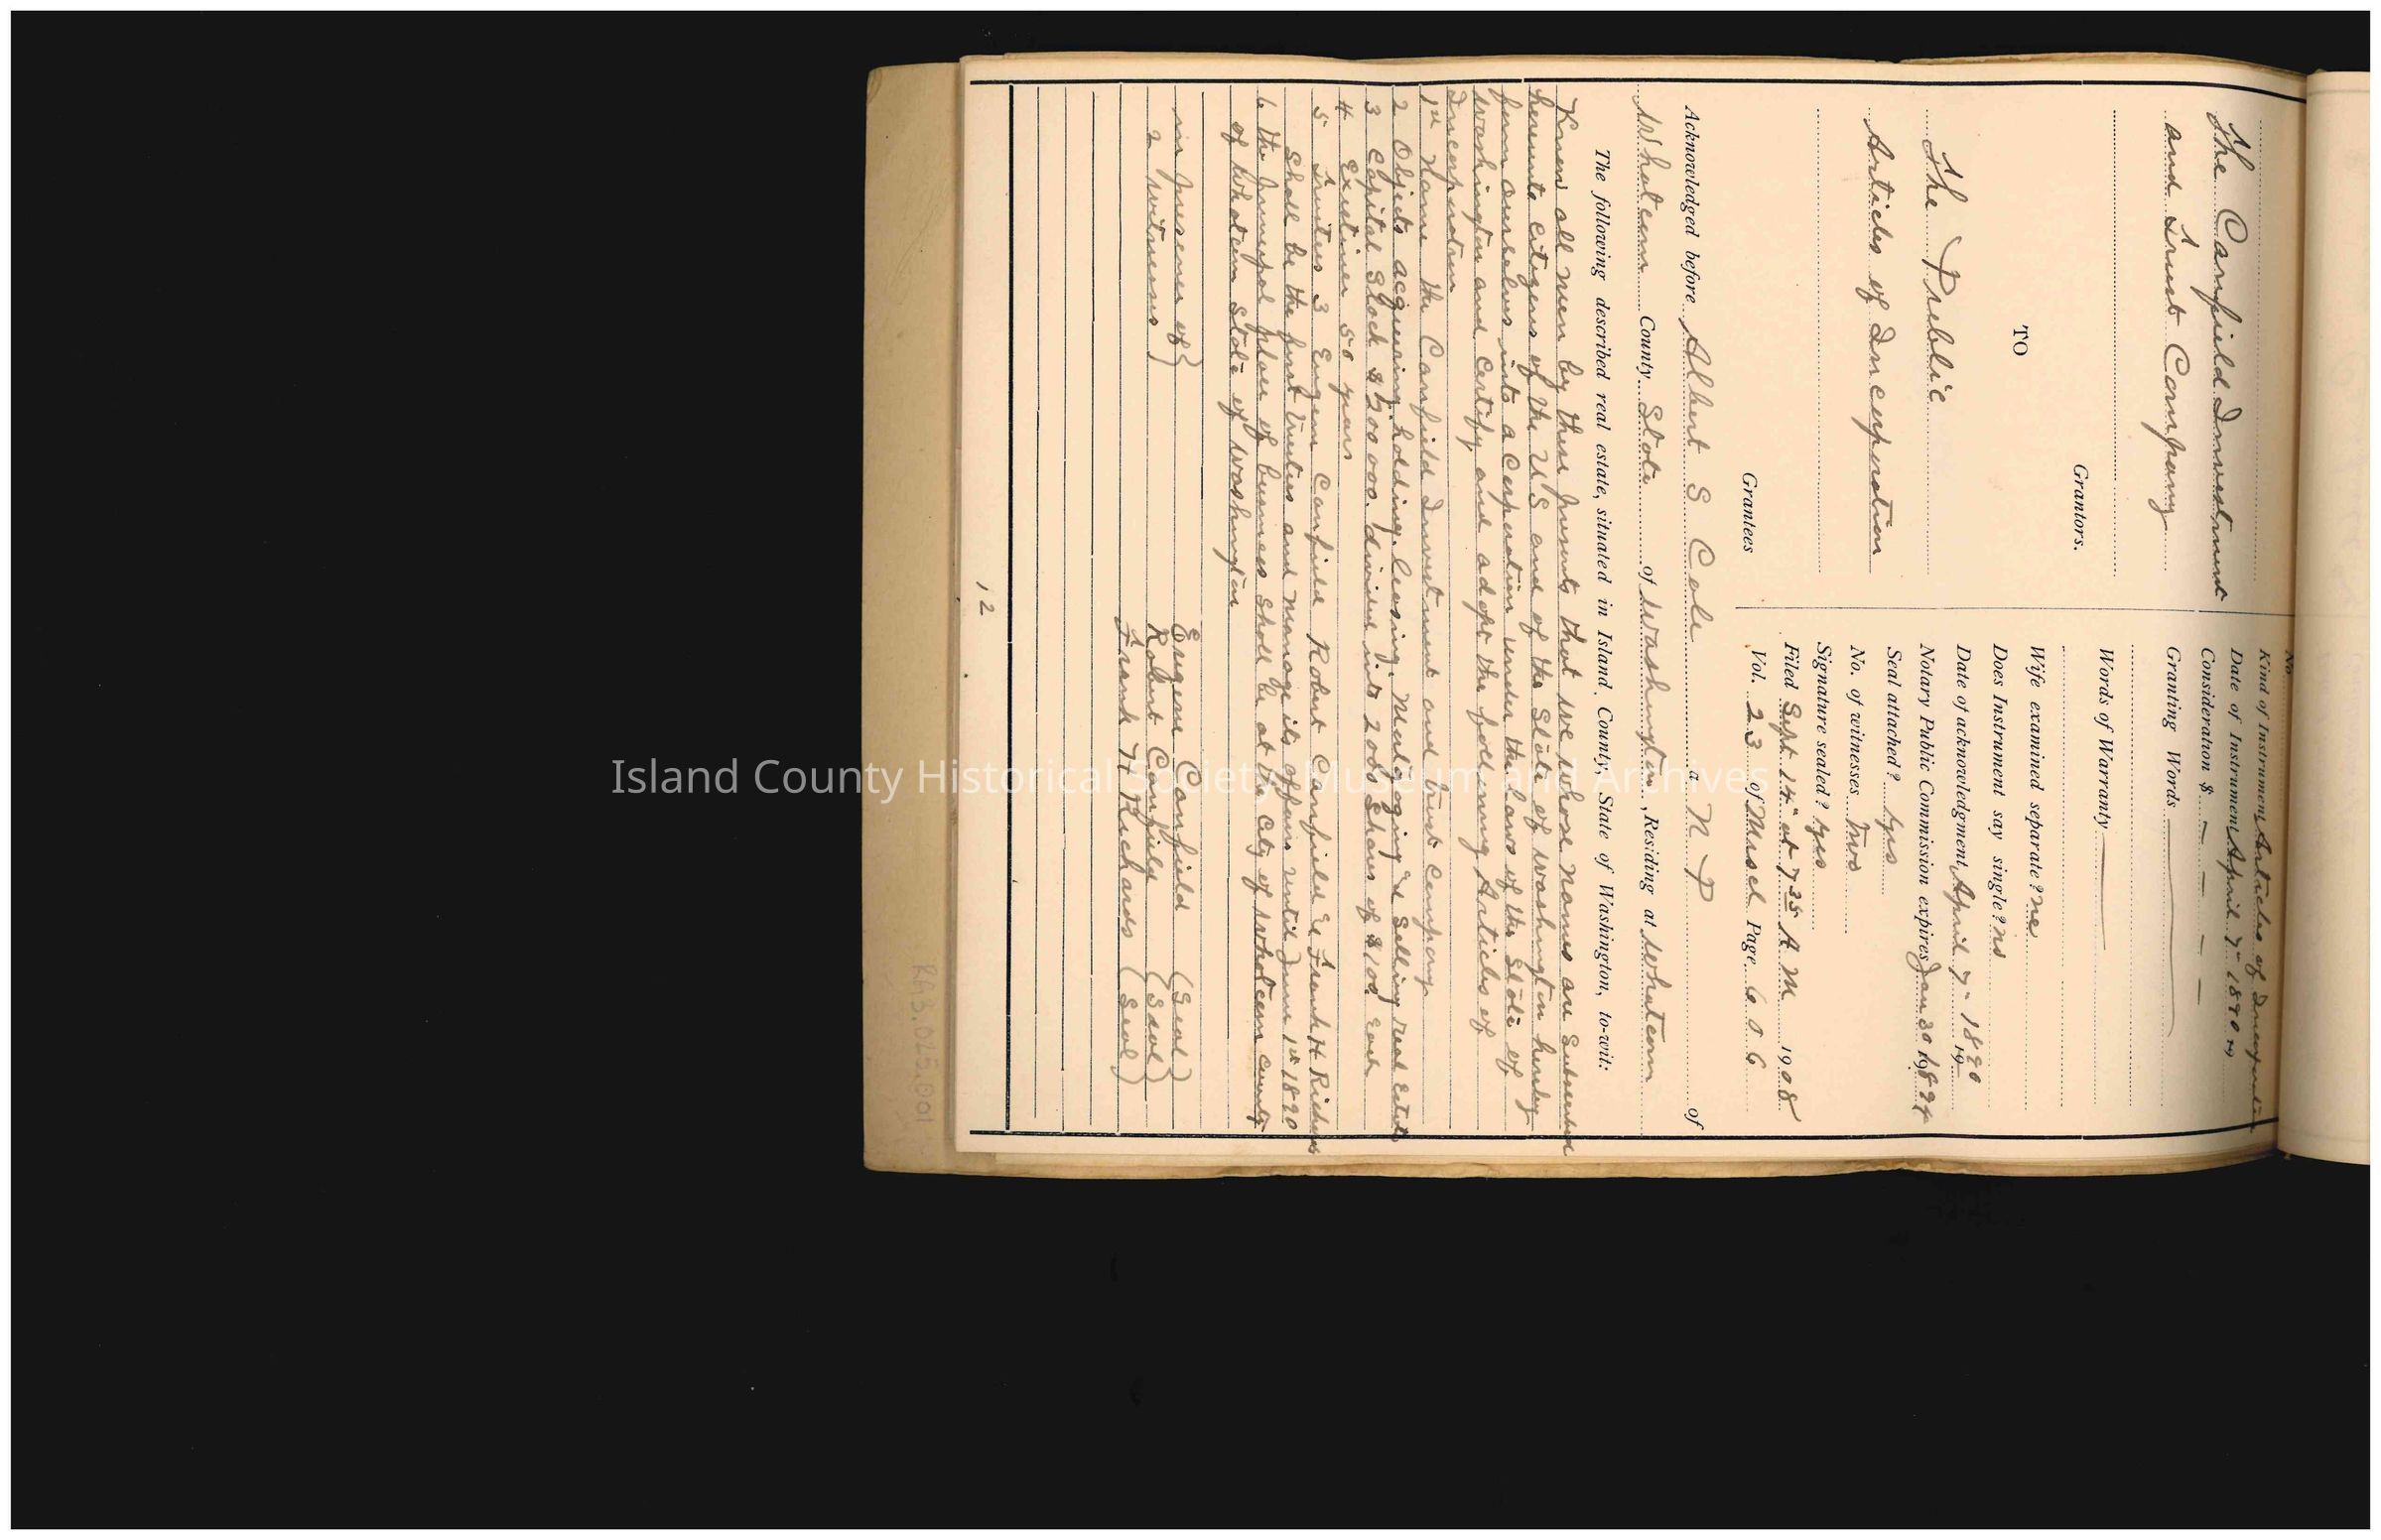 No.
The Canfield Investment
and Trust Company
Grantors.
TO
The Public
Articles of Incorporation
Grantees
Kind of Instrument Articles of Incorporation
Date of Instrument April 7" 1890 19
Consideration $ — — — —
Granting Words
Words of Warranty
Wife examined separate? no
Does Instrument say single? no
Date of acknowledgment April 7" 1890 19
Notary Public Commission expires Jan 30 1894
Seal attached? yes
No. of witnesses two
Signature sealed? yes
Filed Sept 14" at 7 35 A M 1908
Vol. 23 of Miscl Page 606
Acknowledged before Albert S Cole a N P of
Whatcom County State of Washington, Residing at Whatcom
The following described real estate, situated in Island County, State of Washington, to-wit:
Know all men by these presents that we whose names are Subscribed
hereunto citizens of the U S and of the State of Washington hereby
form ourselves into a Corporation under the laws of the State of
Washington and Certify and adopt the following Articles of
Incorporation
1st Name the Canfield Investment and Trust Company
2 Objects acquiring, holding, leasing, Mortgaging & Selling real Estate
3 Capital Stock $200000. divided into 2000 Shares of $100. Each
4 Existence 50 years
5 Trustees 3 Eugene Canfield Robert Canfield & Frank H Richards
Shall be the first trustees and manage its affairs until June 1st 1890
6 the principal place of business Shall be at the City of Whatcom County
of Whatcom State of Washington
in presence of }
2 witnesses }
Eugene Canfield (Seal)
Robert Canfield (Seal)
Frank H Richards (Seal)
12
RG3.025.001
Island County Historical Society Museum and Archives